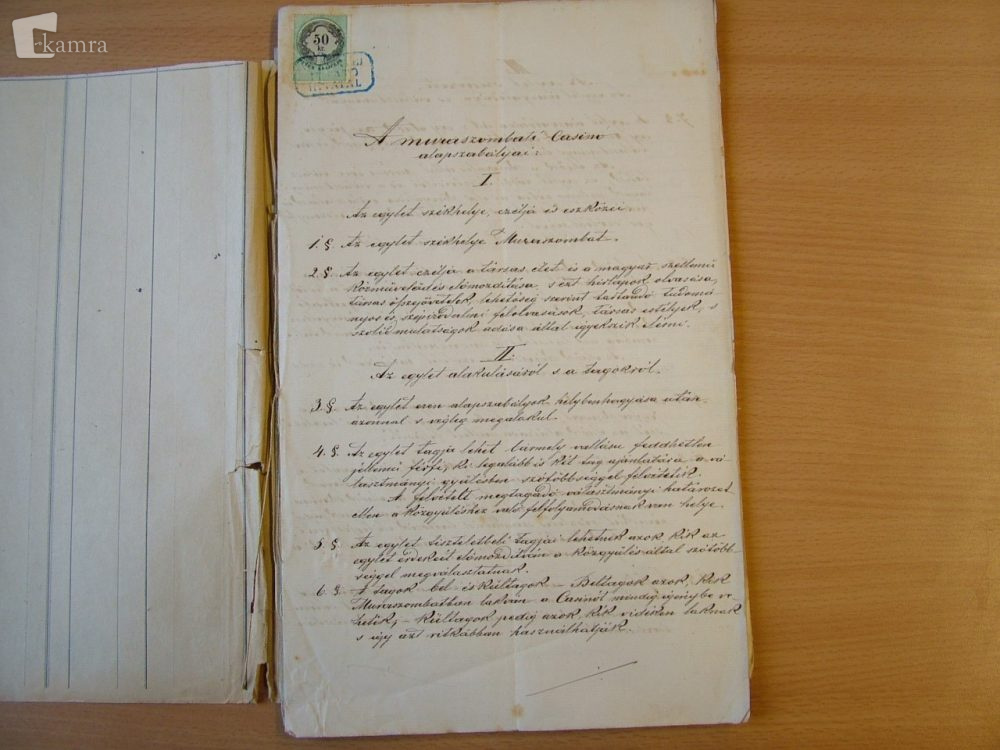 rkamra
50
kr.
A muraszombati Casino
alapszabályai:
I.
Az egylet székhelye, czélja és eszközei
1. §. Az egylet székhelye Muraszombat.
2. §. Az egylet czélja a társas élet és a magyar szellemü
közmüvelődés előmozdítása, s ezt hirlapok olvasása,
társas összejövetelek, lehetőség szerint tartandó tudomá
nyos és szépirodalmi felolvasások, társas estélyek, s
szolid mulatságok adása által igyekszik elérni.
II.
Az egylet alakulásáról s a tagokról.
3. §. Az egylet ezen alapszabályok helybenhagyása után
azonnal s végleg megalakul.
4. §. Az egylet tagja lehet bármely vallásu feddhetlen
jellemü férfi, ki legalább is két tag ajánlatára a vá
lasztmányi gyülésben szótöbbséggel felvétetik.
A felvételt megtagadó választmányi határozat
ellen a közgyüléshez való felfolyamodásnak van helye.
5. §. Az egylet tiszteletbeli tagjai lehetnek azok, kik az
egylet érdekeit előmozditván a közgyülés által szótöbb
séggel megválasztatnak.
6. §. A tagok bel- és kültagok – Beltagok azok, kik
Muraszombatban lakván a Casinót mindig igénybe ve
hetik, – kültagok pedig azok, kik vidéken laknak
s így azt ritkábban használhatják.